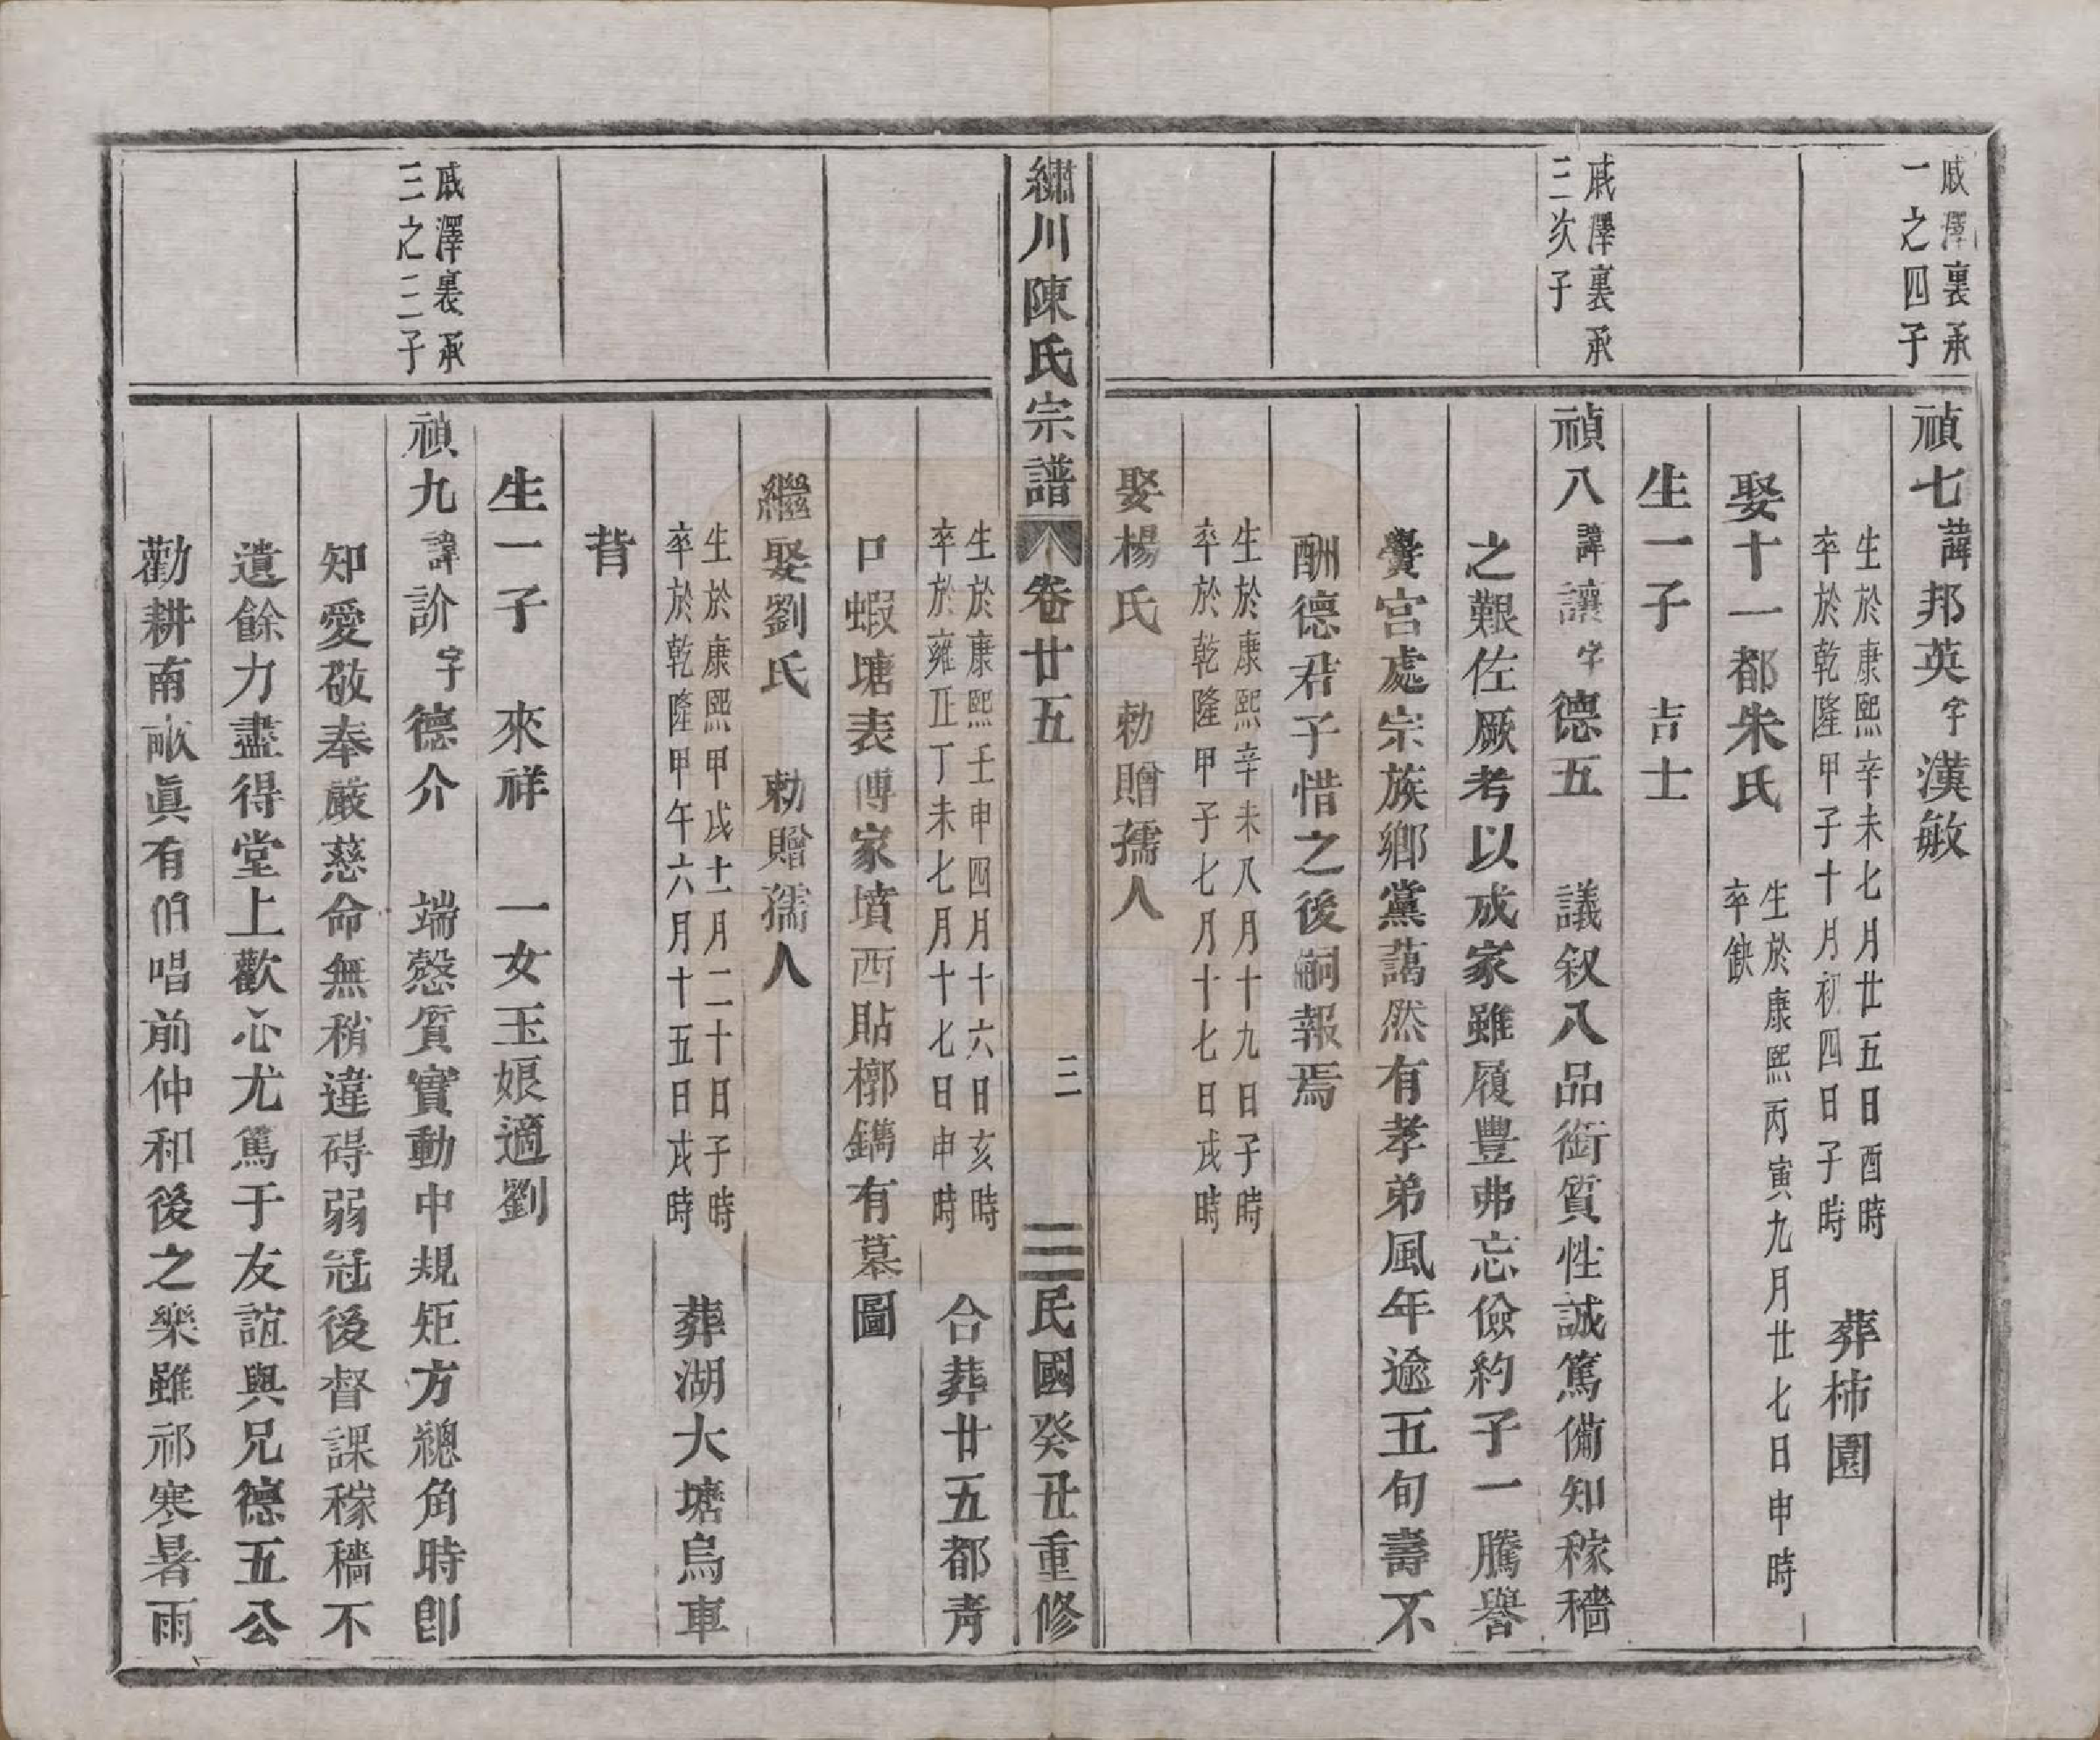 戚澤裏承
一之四子
禎七諱邦英字漢敏
生於康熙辛未七月廿五日酉時
卒於乾隆甲子十月初四日子時
葬柿園
娶十一都朱氏
生於康熙丙寅九月廿七日申時
卒缺
生一子 吉士
戚澤裏承
三次子
禎八諱讓字德五 議叙八品銜質性誠篤備知稼穡
之艱佐厥考以成家雖履豐弗忘儉約子一騰譽
黌宮處宗族鄉黨藹然有孝弟風年逾五旬壽不
酬德君子惜之後嗣報焉
生於康熙辛未八月十九日子時
卒於乾隆甲子七月十七日戌時
娶楊氏 勅贈孺人
繡川陳氏宗譜 卷廿五 三 民國癸丑重修
生於康熙壬申四月十六日亥時
卒於雍正丁未七月十七日申時
合葬廿五都青
口蝦塘表傅家墳西貼槨鐫有墓圖
繼娶劉氏 勅贈孺人
生於康熙甲戌十一月二十日子時
卒於乾隆甲午六月十五日戌時
葬湖大塘烏車
背
生一子 來祥 一女玉娘適劉
戚澤裏承
三之三子
禎九諱訥字德介 端慤質實動中規矩方總角時卽
知愛敬奉嚴慈命無稍違碍弱冠後督課稼穡不
遺餘力盡得堂上歡心尤篤于友誼與兄德五公
勸耕南畝眞有伯唱前仲和後之樂雖祁寒暑雨